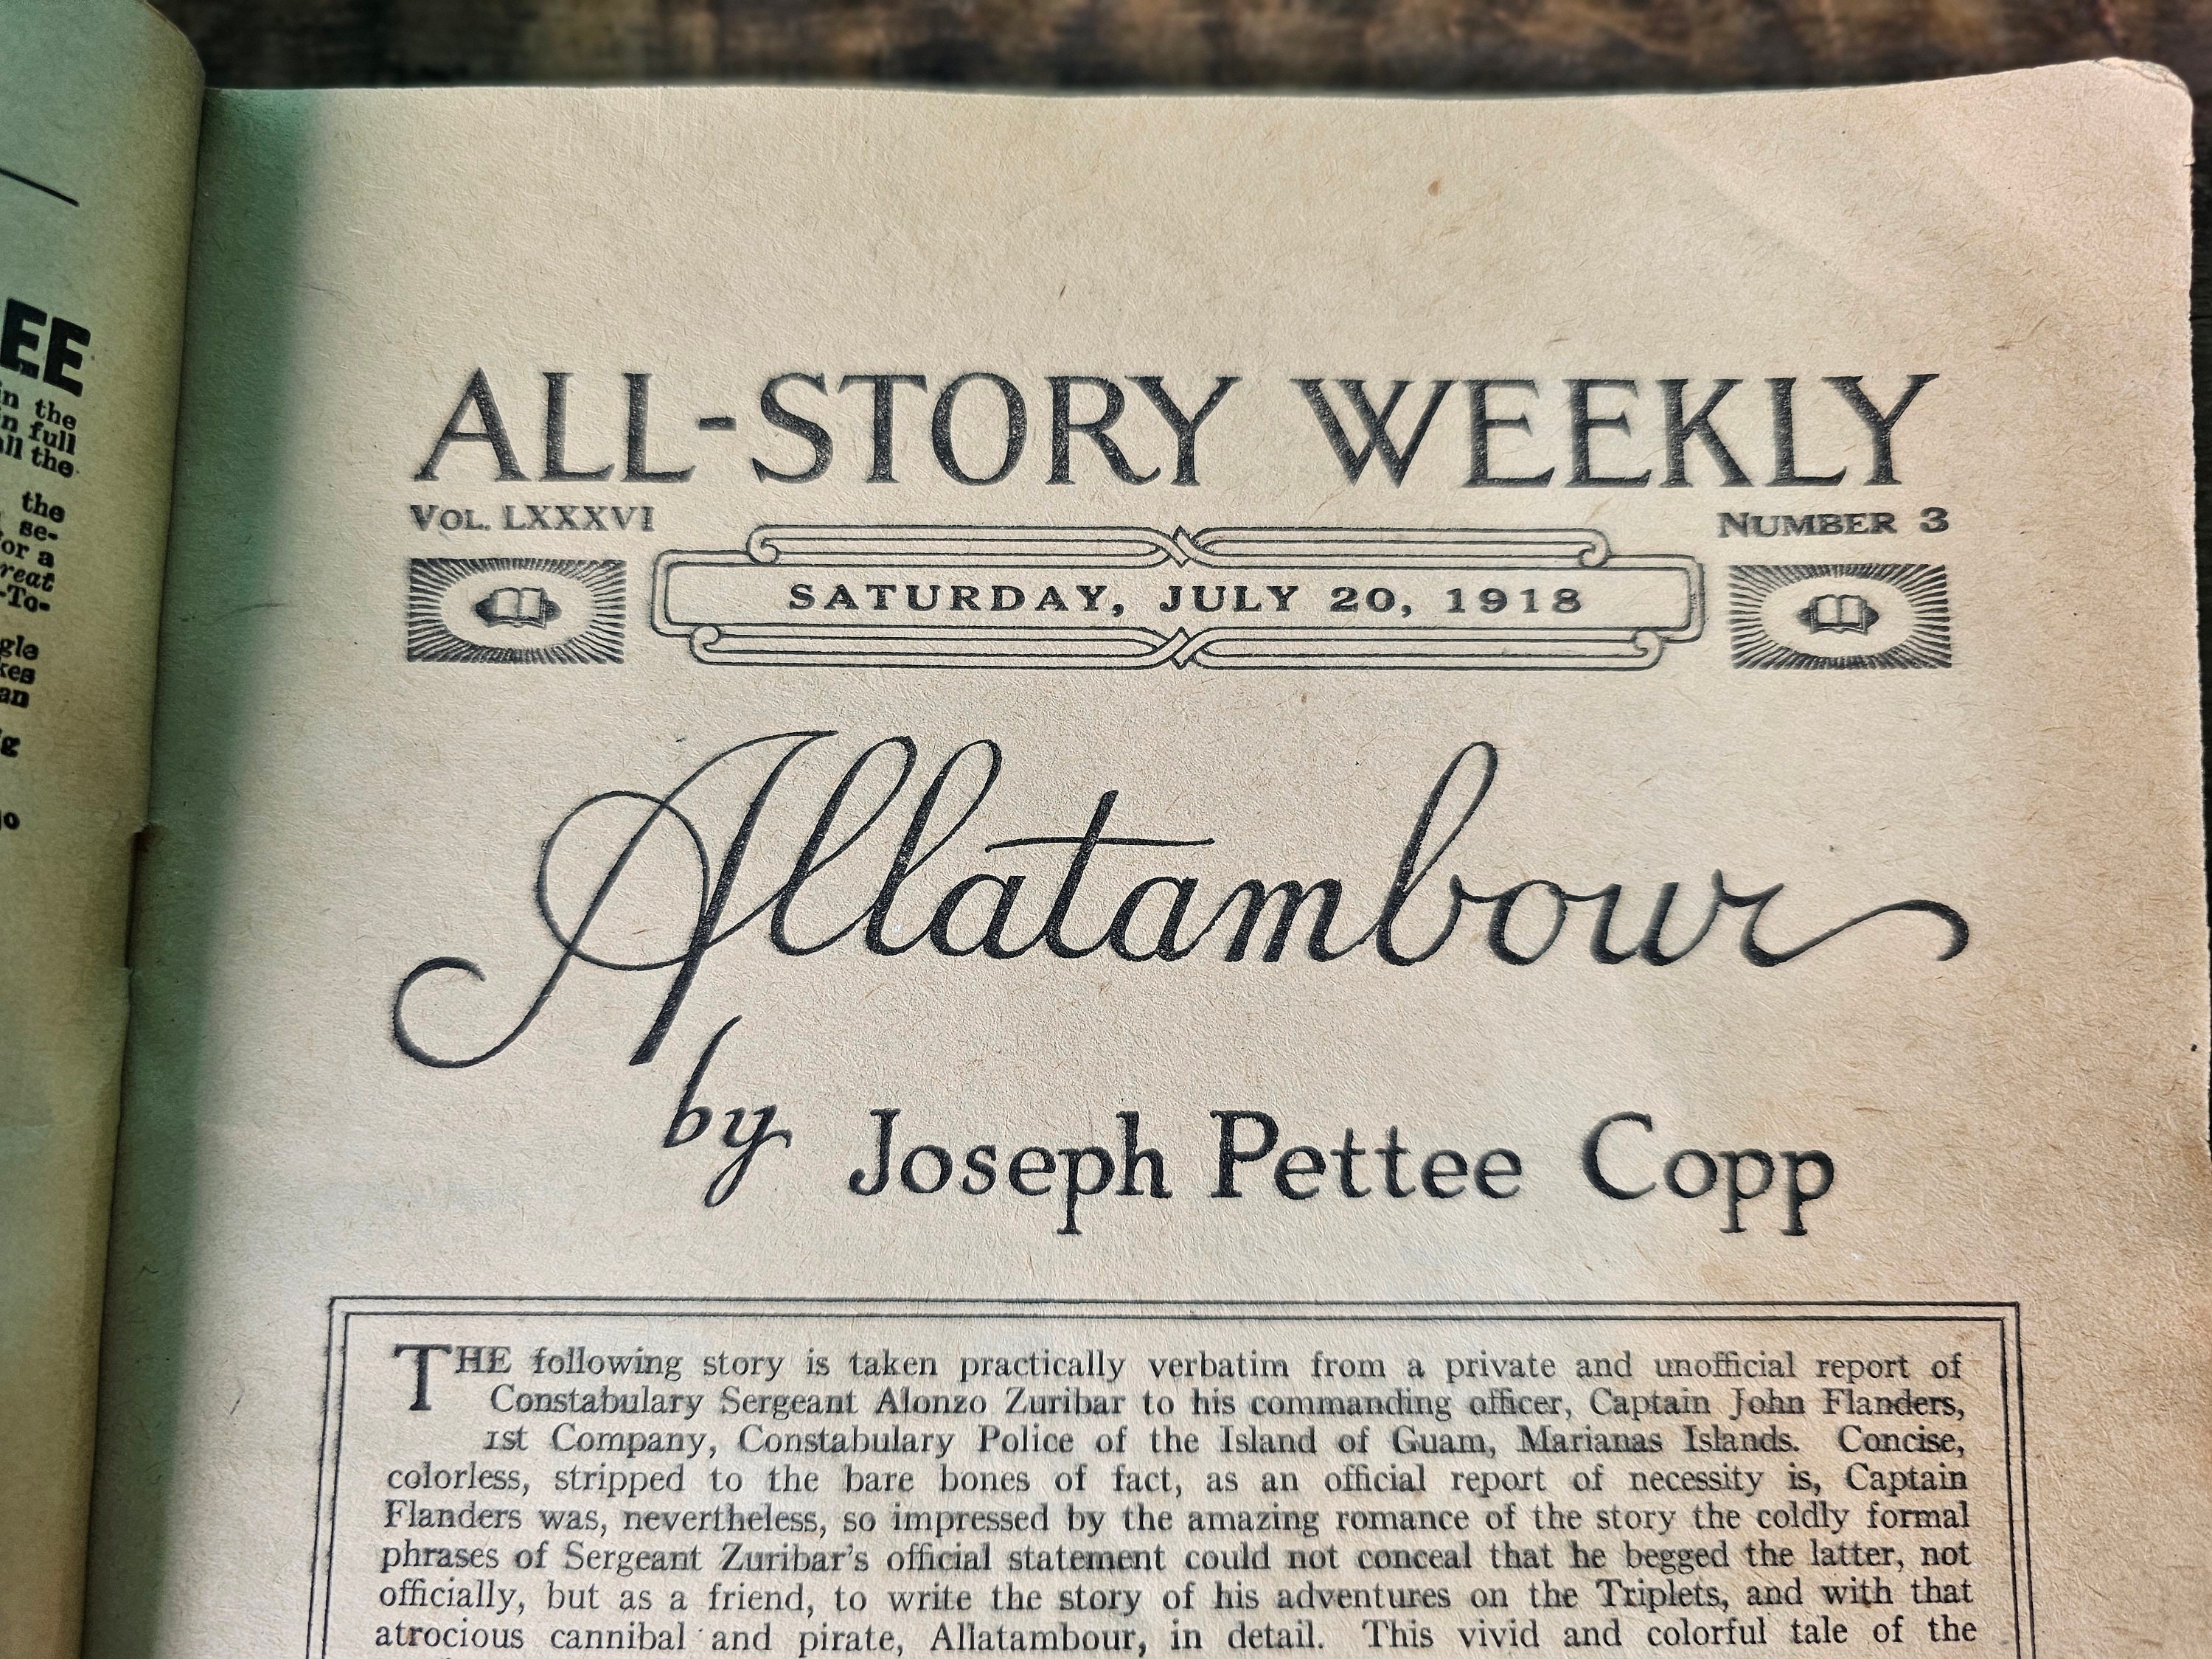 EE
in the
in full
all the
the
se-
for a
reat
-To-
gle
kes
an
ALL-STORY WEEKLY
VOL. LXXXVI
NUMBER 3
SATURDAY, JULY 20, 1918
Allatambour
by Joseph Pettee Copp
THE following story is taken practically verbatim from a private and unofficial report of
Constabulary Sergeant Alonzo Zuribar to his commanding officer, Captain John Flanders,
1st Company, Constabulary Police of the Island of Guam, Marianas Islands. Concise,
colorless, stripped to the bare bones of fact, as an official report of necessity is, Captain
Flanders was, nevertheless, so impressed by the amazing romance of the story the coldly formal
phrases of Sergeant Zuribar's official statement could not conceal that he begged the latter, not
officially, but as a friend, to write the story of his adventures on the Triplets, and with that
atrocious cannibal and pirate, Allatambour, in detail. This vivid and colorful tale of the